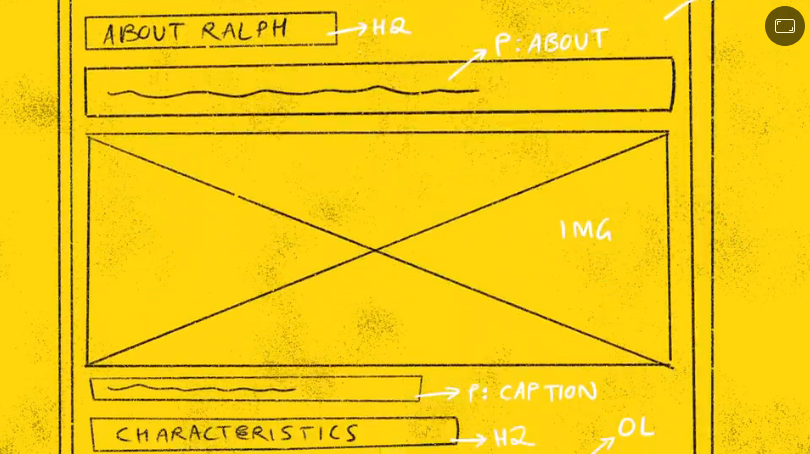 ABOUT RALPH → H2
P: ABOUT
IMG
P: CAPTION
CHARACTERISTICS → H2
OL